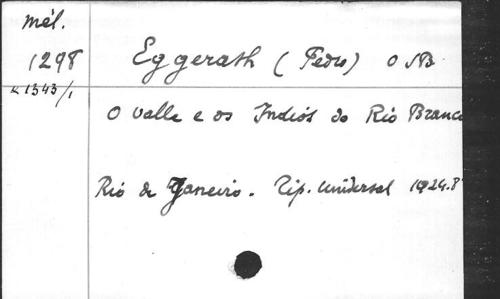 Mél.
1298
Eggerath (Pedro) O SB
x 1343/1
O valle e os Indiós do Rio Branco
Rio de Janeiro. Tip. Universal 1924. 8°